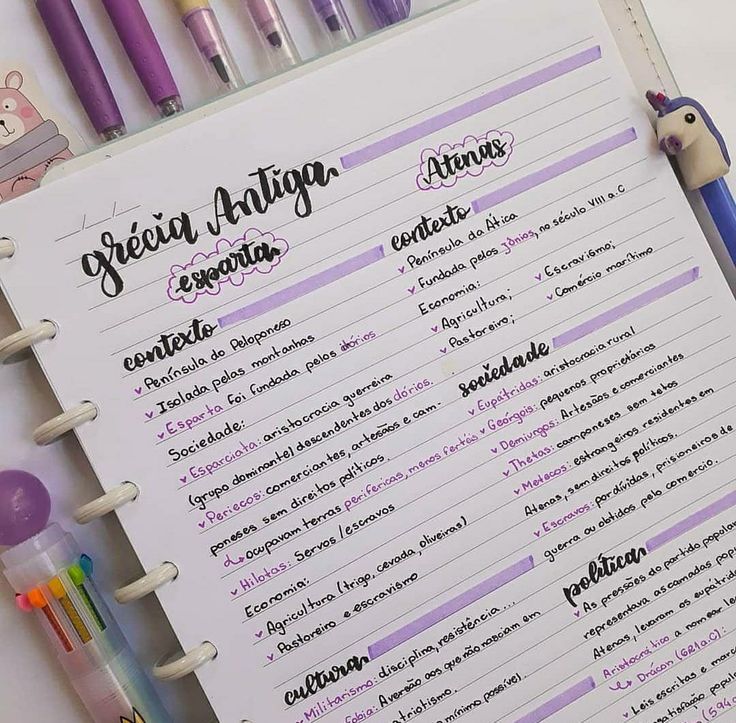 grécia Antiga
esparta
contexto
Península do Peloponeso
Isolada pelas montanhas
Esparta foi fundada pelos dórios
Sociedade:
Esparciata: aristocracia guerreira
(grupo dominante) descendentes dos dórios.
Periecos: comerciantes, artesãos e cam-
poneses sem direitos políticos.
ocupavam terras perifericas, menos fertéis
Hilotas: Servos / escravos
Economia:
Agricultura (trigo, cevada, oliveiras)
Pastoreiro e escravismo
cultura
Militarismo: disciplina, resistência...
Fobia: Aversão aos que não nasciam em
mínimo possível.
Atenas
contexto
Península da Ática
Fundada pelos jônios, no século VIII a.C
Economia:
Agricultura;
Pastoreiro;
Escravismo;
Comércio marítimo
sociedade
Eupátridas: aristocracia rural
Geórgois: pequenos proprietários
Demiurgos: Artesãos e comerciantes
Thetas: camponeses sem tetos
Metecos: estrangeiros residentes em
Atenas, sem direitos políticos.
Escravos: por dívidas, prisioneiros de
guerra ou obtidos pelo comercio.
política
As pressões do partido popular
representava as camadas
Atenas, levaram os
Aristocrático a nomear
Drácon (621 a.C):
Leis escritas e